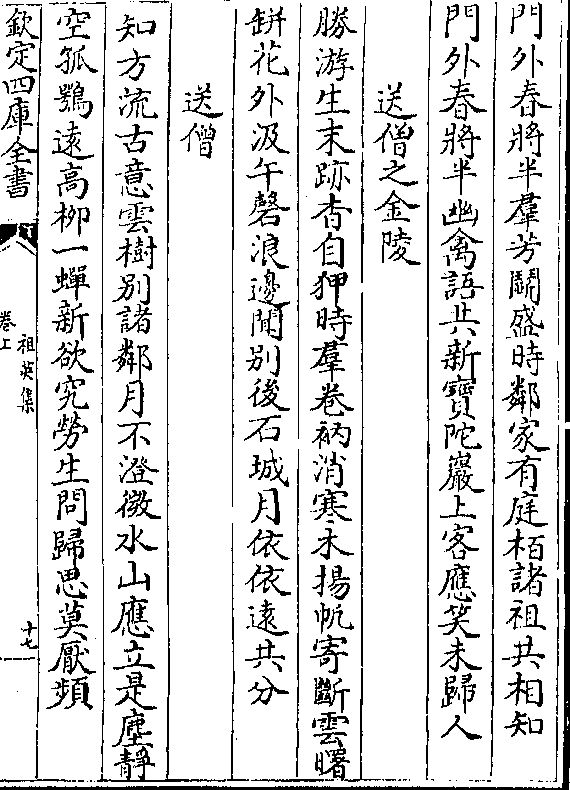 門外春將半羣芳鬭盛時鄰家有庭栢諸祖共相知
門外春將半幽禽語共新寶陀巖上客應笑未歸人
送僧之金陵
勝游生末跡杳自狎時羣卷衲消寒木揚帆寄斷雲曙
缾花外汲午磬浪邊聞别後石城月依依遠共分
送僧
知方流古意雲樹别諸鄰月不澄微水山應立是塵静
空孤鶚遠高栁一蟬新欲究勞生問歸思莫厭頻
欽定四庫全書
祖英集
卷上
十七